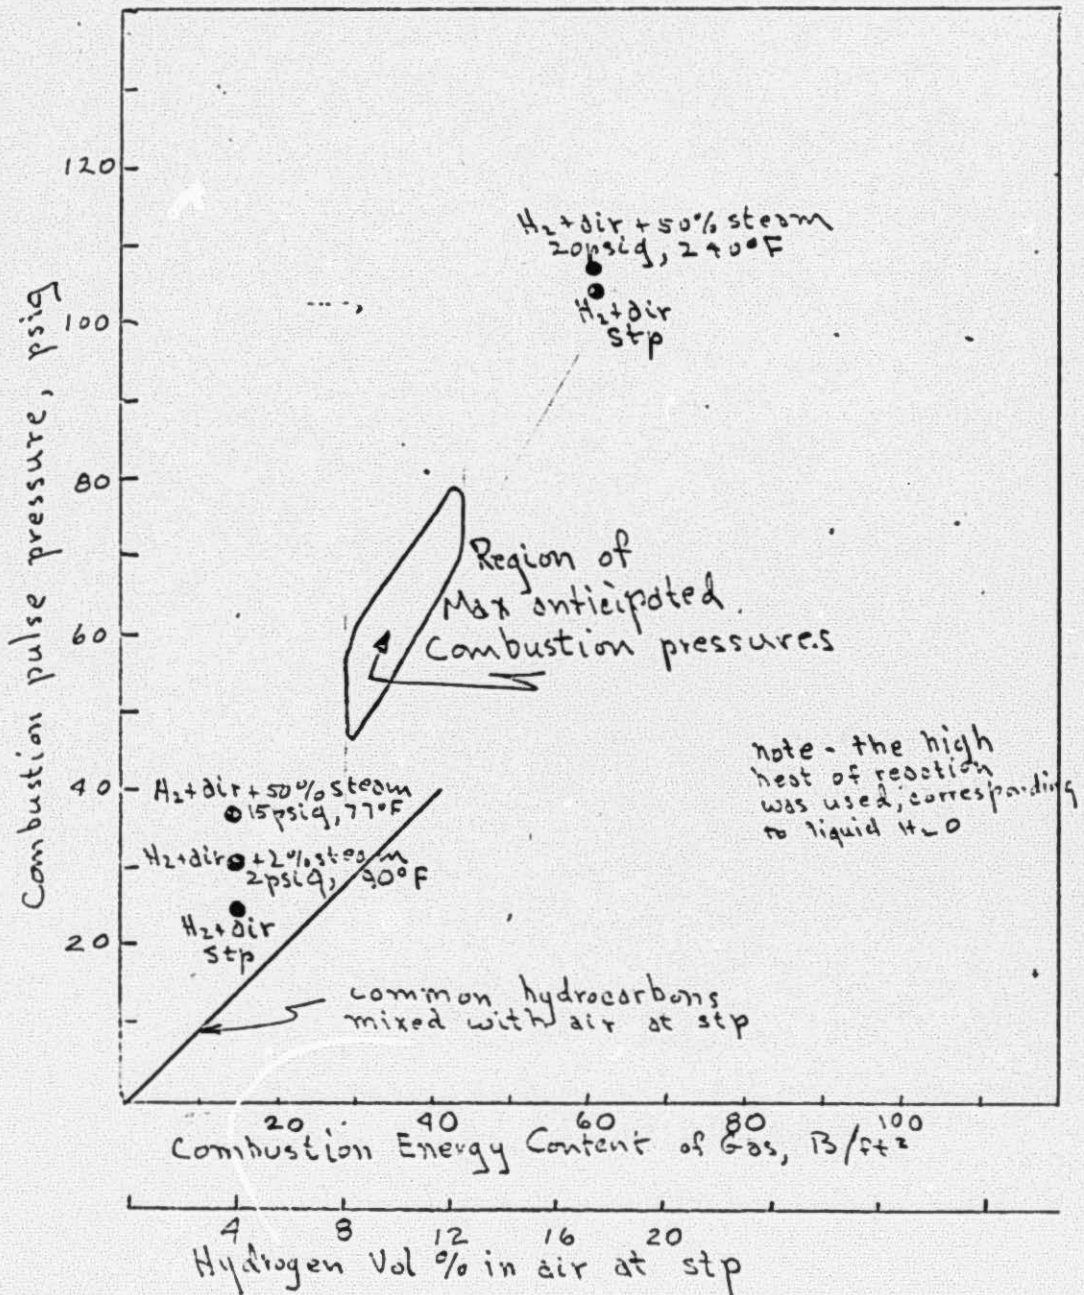 Combustion pulse pressure, psig
120
100
80
60
40
20
H₂+air+50% steam
20psig, 240°F
H₂+air
stp
Region of
Max anticipated
Combustion pressures
note - the high
heat of reaction
was used, corresponding
to liquid H₂O
H₂+air+50% steam
15psig, 77°F
H₂+air+2% steam
2psig, 90°F
H₂+air
stp
common hydrocarbons
mixed with air at stp
20 40 60 80 100
Combustion Energy Content of Gas, B/ft³
4 8 12 16 20
Hydrogen Vol % in air at stp